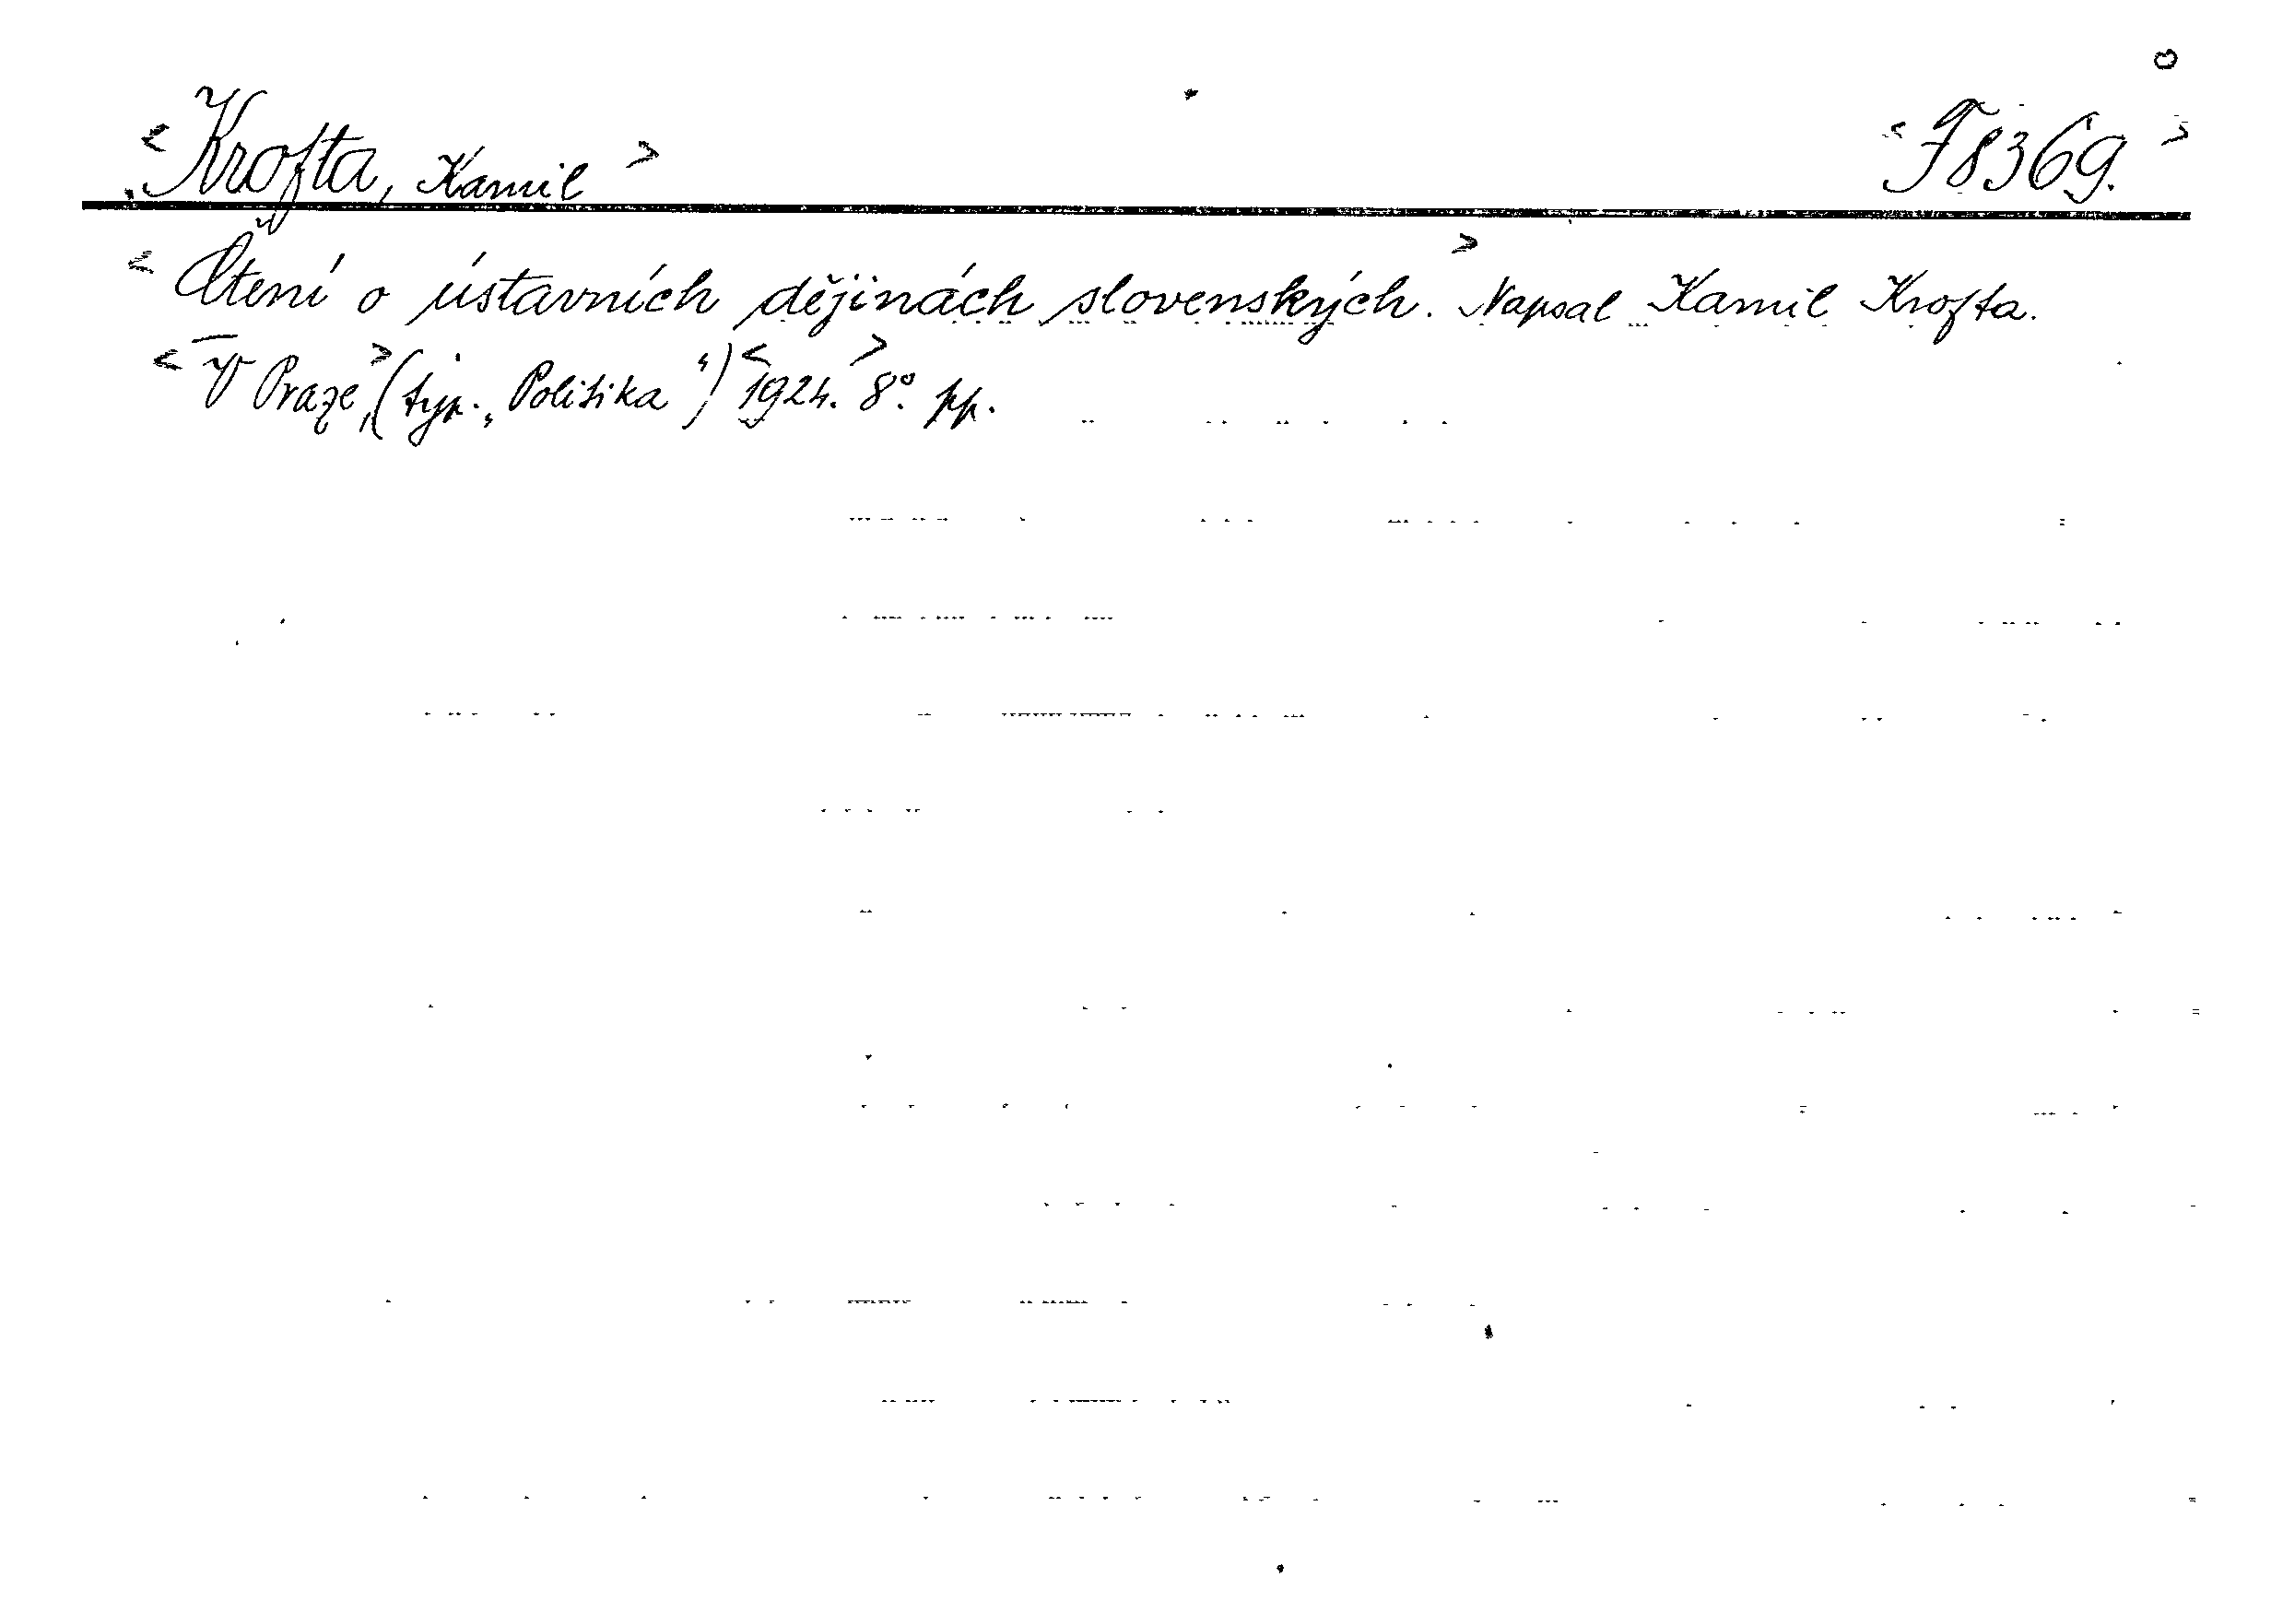 <Krofta, Kamil> <F8369.>
<Čtení o ústavních dějinách slovenských.> Napsal Kamil Krofta.
<V Praze,> (typ. „Politika“) <1924.> 8°. pp.